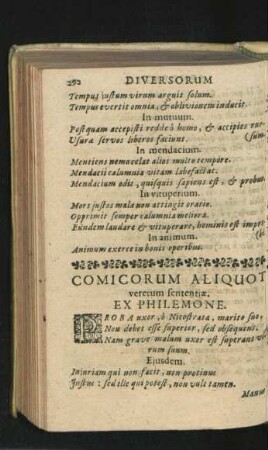 292 DIVERSORUM
Tempus justum virum arguit solum.
Tempus evertit omnia, & oblivionem inducit.
In mutuum.
Postquam accepisti redde ô homo, & accipies rur-
Usura servos liberos faciunt. (sum.
In mendacium.
Mentiens nemo celat alios multo tempore.
Mendacii calumnia vitam labefactat.
Mendacium odit, quisquis sapiens est, & probus.
In vituperium.
Mores justos mala non attingit oratio.
Opprimit semper calumnia meliora.
Eundem laudare & vituperare, hominis est impro-
In animum. (bi.
Animum exerce in bonis operibus.
COMICORUM ALIQUOT
veterum sententiæ.
EX PHILEMONE.
PROBA uxor, ô Nicostrata, marito suo,
Non debet esse superior, sed obsequens.
Nam grave malum uxor est superans vi-
rum suum.
Ejusdem.
Injuriam qui non facit, non protinus
Justus: sed ille qui potest, non vult tamen.